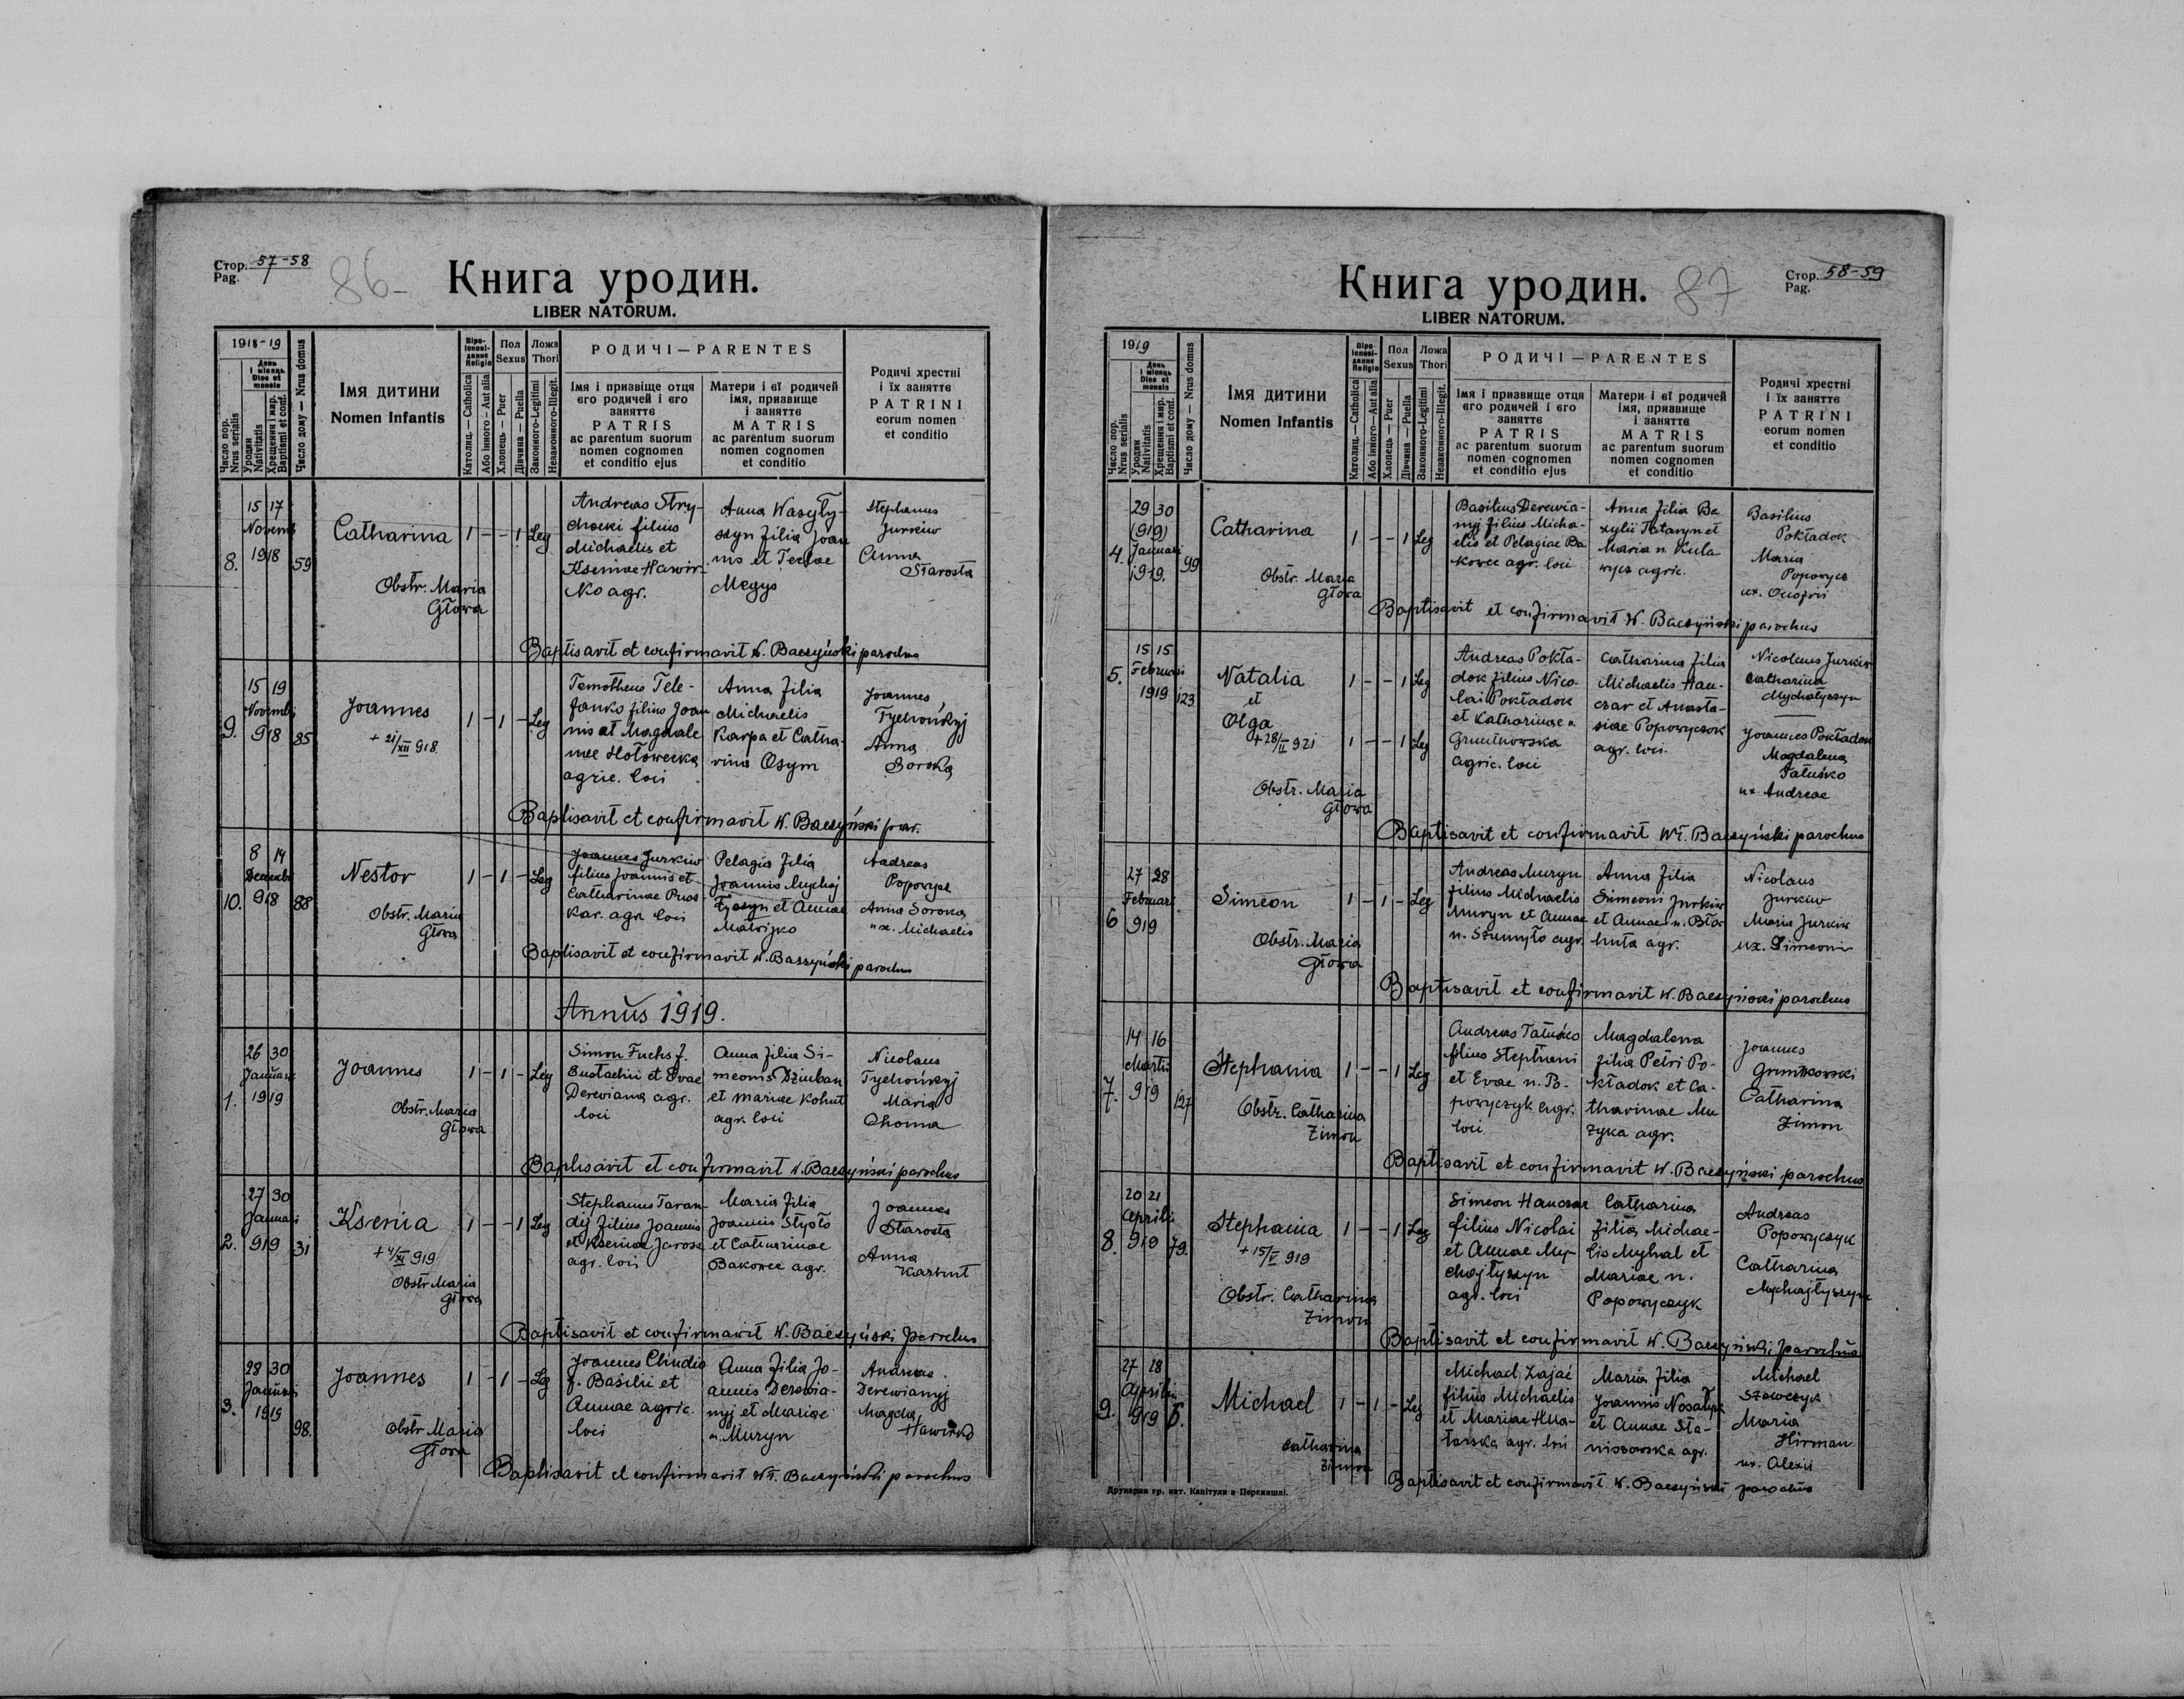 Стор. 57-58
Pag.
86-
Книга уродин.
LIBER NATORUM.
1918-19
Число пор.
Nrus serialis
День
і місяць
Dies et
mensis
Уродин
Nativitatis
Хрещення і мир.
Baptismi et conf.
Число дому — Nrus domus
Імя дитини
Nomen Infantis
Віро-
ісповідання
Religio
Католиц. — Catholica
Або інного — Aut alia
Пол
Sexus
Хлопець — Puer
Дівчина — Puella
Ложа
Thori
Законного-Legitimi
Незаконного-Illegit.
РОДИЧІ — PARENTES
Імя і призвіще отця
єго родичей і єго
занятте
PATRIS
ac parentum suorum
nomen cognomen
et conditio ejus
Матери і єї родичей
імя, призвище
і занятте
MATRIS
ac parentum suorum
nomen cognomen
et conditio
Родичі хрестні
і їх занятте
PATRINI
eorum nomen
et conditio
8.
15 17
Novemb
1918
59
Catharina
1 — — 1 Leg
Obstr. Maria
Głowa
Andreas Stry-
filius
Michaelis et
Kseniae Hawir-
ko agr.
Anna Wasyły-
szyn filia Joan
nis et Teclae
Megys
Stephanus
Jurkiw
Anna
Starosta
Baptisavit et confirmavit W. Baczyński parochus
9.
15 19
Novembris
918
85
Joannes
+ 21/XII 918
1 — 1 — Leg
Temotheus Tele-
fanko filius Joan
nis et Magdale
nae
agric. loci
Anna filia
Michaelis
Karpa et Catha-
rina Osym
Joannes
Tychońkyj
Anna
Soroka
Baptisavit et confirmavit W. Baczyński par.
10.
8 14
Decembr
918
88
Nestor
1 — 1 — Leg
Obstr. Maria
Głowa
Joannes Jurkiw
filius Joannis et
Catharinae
agr. loci
Pelagia filia
Joannis Mychaj
łyszyn et Annae
Matwijko
Andreas
Popowycz
Anna Soroka
ux. Michaelis
Baptisavit et confirmavit W. Baczyński parochus
Annus 1919.
1.
26 30
Januar
1919
Joannes
1 — 1 — Leg
Obstr. Maria
Głowa
Simon Fuchs f.
Eustachii et Evae
Derewiana agr.
loci
Anna filia Si-
meonis Dziuban
et Mariae Kohut
agr. loci
Nicolaus
Tychońkyj
Maria
Choma
Baptisavit et confirmavit W. Baczyński parochus
2.
27 30
Januari
919
31
Ksenia
+ 4/XI 919
1 — — 1 Leg
Obstr Maria
Głowa
Stephanus Taran-
dij filius Joannis
et Kseniae Jarosz
agr. loci
Maria filia
Joannis Stypło
et Catharinae
Bakowec agr.
Joannes
Starosta
Anna
Karhut
Baptisavit et confirmavit W. Baczyński parochus
3.
28 30
Januari
1919
98.
Joannes
1 — 1 — Leg
Obstr Maria
Głowa
Joannes Chudio
f. Basilii et
Annae agric.
loci
Anna filia Jo-
annis Derewia-
nyj et Mariae
n. Muryn
Andreas
Derewianyj
Magda
Hawirko
Baptisavit et confirmavit Wł. Baczyński parochus
Стор. 58-59
Pag.
87
Книга уродин.
LIBER NATORUM.
1919
Число пор.
Nrus serialis
День
і місяць
Dies et
mensis
Уродин
Nativitatis
Хрещення і мир.
Baptismi et conf.
Число дому — Nrus domus
Імя дитини
Nomen Infantis
Віро-
ісповідання
Religio
Католиц. — Catholica
Або інного — Aut alia
Пол
Sexus
Хлопець — Puer
Дівчина — Puella
Ложа
Thori
Законного-Legitimi
Незаконного-Illegit.
РОДИЧІ — PARENTES
Імя і призвище отця
єго родичей і єго
занятте
PATRIS
ac parentum suorum
nomen cognomen
et conditio ejus
Матери і єї родичей
імя, призвище
і занятте
MATRIS
ac parentum suorum
nomen cognomen
et conditio
Родичі хрестні
і їх занятте
PATRINI
eorum nomen
et conditio
4.
29 30
(919)
Januari
1919.
99
Catharina
1 — — 1 Leg
Obstr. Maria
Głowa
Basilius Derewia-
nyj filius Micha-
elis et Pelagiae Ba
kowec agr. loci
Anna filia Ba
sylii Tataryn et
Maria n. Kula
wycz agric.
Basilius
Pokładok
Maria
Popowycz
ux. Onofrii
Baptisavit et confirmavit W. Baczyński parochus
5.
15 15
Februari
1919
123
Natalia
et
Olga
+28/II 921
1 — — 1 Leg
1 — — 1 Leg
Obstr. Maria
Głowa
Andreas Pokła-
dok filius Nico-
lai Pokładok
et Katharinae n.
Gruntkowska
agric. loci
Catharina filia
Michaelis Han-
czar et Anasta-
siae Popowyczok
agr. loci.
Nicolaus Jurkiw
Catharina
Mychałyszyn
Joannes Pokładok
Magdalena
Tatuśko
ux Andreae
Baptisavit et confirmavit Wł. Baczyński parochus
6
27 28
Februari
919
Simeon
1 — 1 — Leg
Obstr. Maria
Głowa
Andreas Muryn
filius Michaelis
Muryn et Annae
n. Szumyło agr.
Anna filia
Simeoni Jurkiw
et Annae n. Bła-
huta agr.
Nicolaus
Jurkiw
Maria Jurkiw
ux. Simeonis
Baptisavit et confirmavit W. Baczyński parochus
7.
14 16
Martii
919
127
Stephania
1 — — 1 Leg
Obstr. Catharina
Zimon
Andreas Tatuśko
filius Stephani
et Evae n. Po-
powyczyk agr.
loci
Magdalena
filia Petri Po-
kładok et Ca-
tharinae Mu
zyka agr.
Joannes
Gruntkowski
Catharina
Zimon
Baptisavit et confirmavit W. Baczyński parochus
8.
20 21
Aprilis
919
79.
Stephania
+ 15/V 919
1 — — 1 Leg
Obstr. Catharina
Zimon
Simeon Hanczar
filius Nicolai
et Annae My-
chajłyszyn
agr. loci
Catharina
filia Michae-
lis Myhal et
Mariae n.
Popowyczyk
Andreas
Popowyczyk
Catharina
Mychajłyszyn
Baptisavit et confirmavit W. Baczyński parochus
9.
27 28
Aprilis
919
6.
Michael
1 — 1 — Leg
Catharina
Zimon
Michael Zając
filius Michaelis
et Mariae Hna-
towska agr. loci
Maria filia
Joannis Nosatyk
et Annae Sta-
nissowska agr.
Michael
Szewczyk
Maria
Hirman
ux. Alexii
Baptisavit et confirmavit W. Baczyński parochus
Друкарня гр. кат. Капітули в Перемишлі.